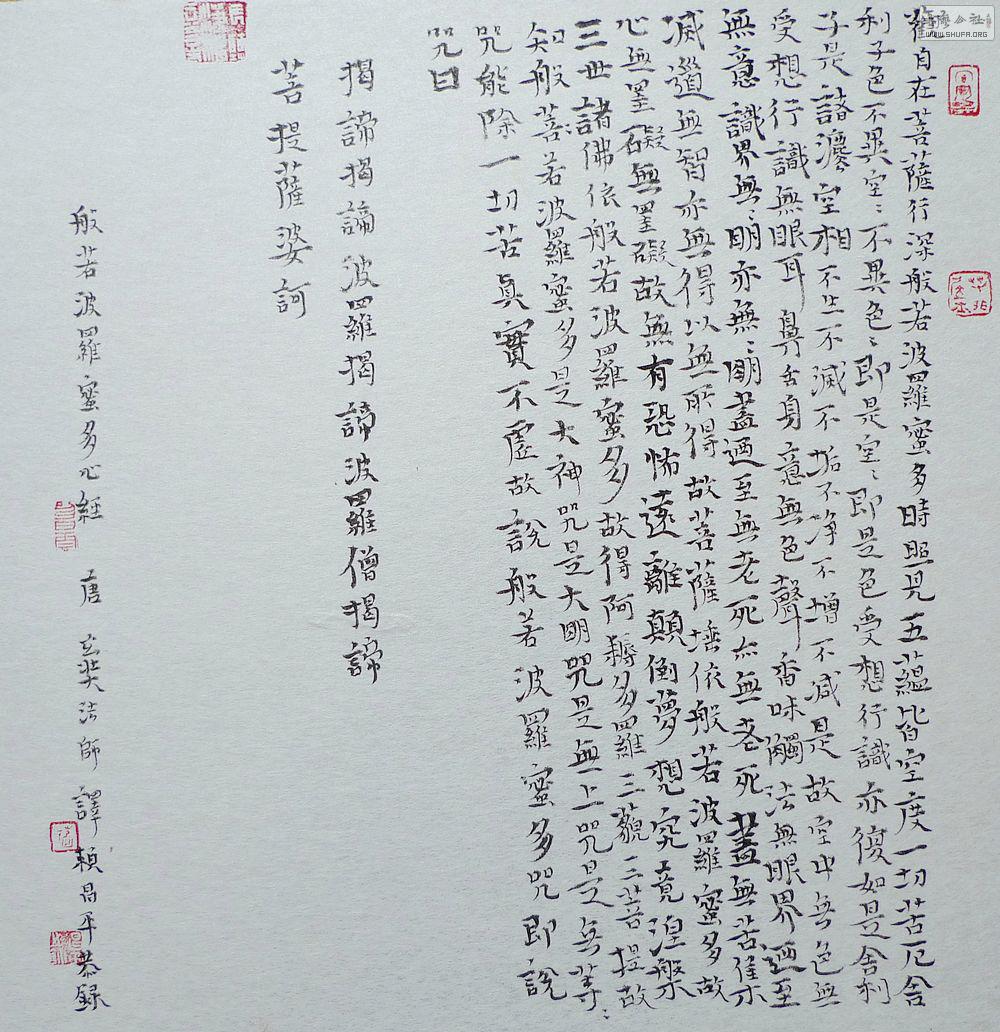 觀自在菩薩行深般若波羅蜜多時照見五蘊皆空度一切苦厄舍
利子色不異空〻不異色〻即是空〻即是色受想行識亦復如是舍利
子是諸灋空相不生不滅不垢不净不增不减是故空中無色無
受想行識無眼耳鼻舌身意無色聲香味觸法無眼界廼至
無意識界無〻明亦無〻明盡廼至無老死亦無老死盡無苦集
滅道無智亦無得以無所得故菩薩埵依般若波羅蜜多故
心無罣礙無罣礙故無有恐怖遠離顛倒夢想究竟涅槃
三世諸佛依般若波羅蜜多故得阿耨多羅三藐三菩提故
知般菩若波羅蜜多是大神咒是大明咒是無上咒是無等〻
咒能除一切苦真實不虛故說般若波羅蜜多咒即說
咒曰
揭諦揭諦波羅揭諦波羅僧揭諦
菩提薩婆訶
般若波羅蜜多心經 唐玄奘法師譯 賴昌平恭録
WWW.SHUFA.ORG